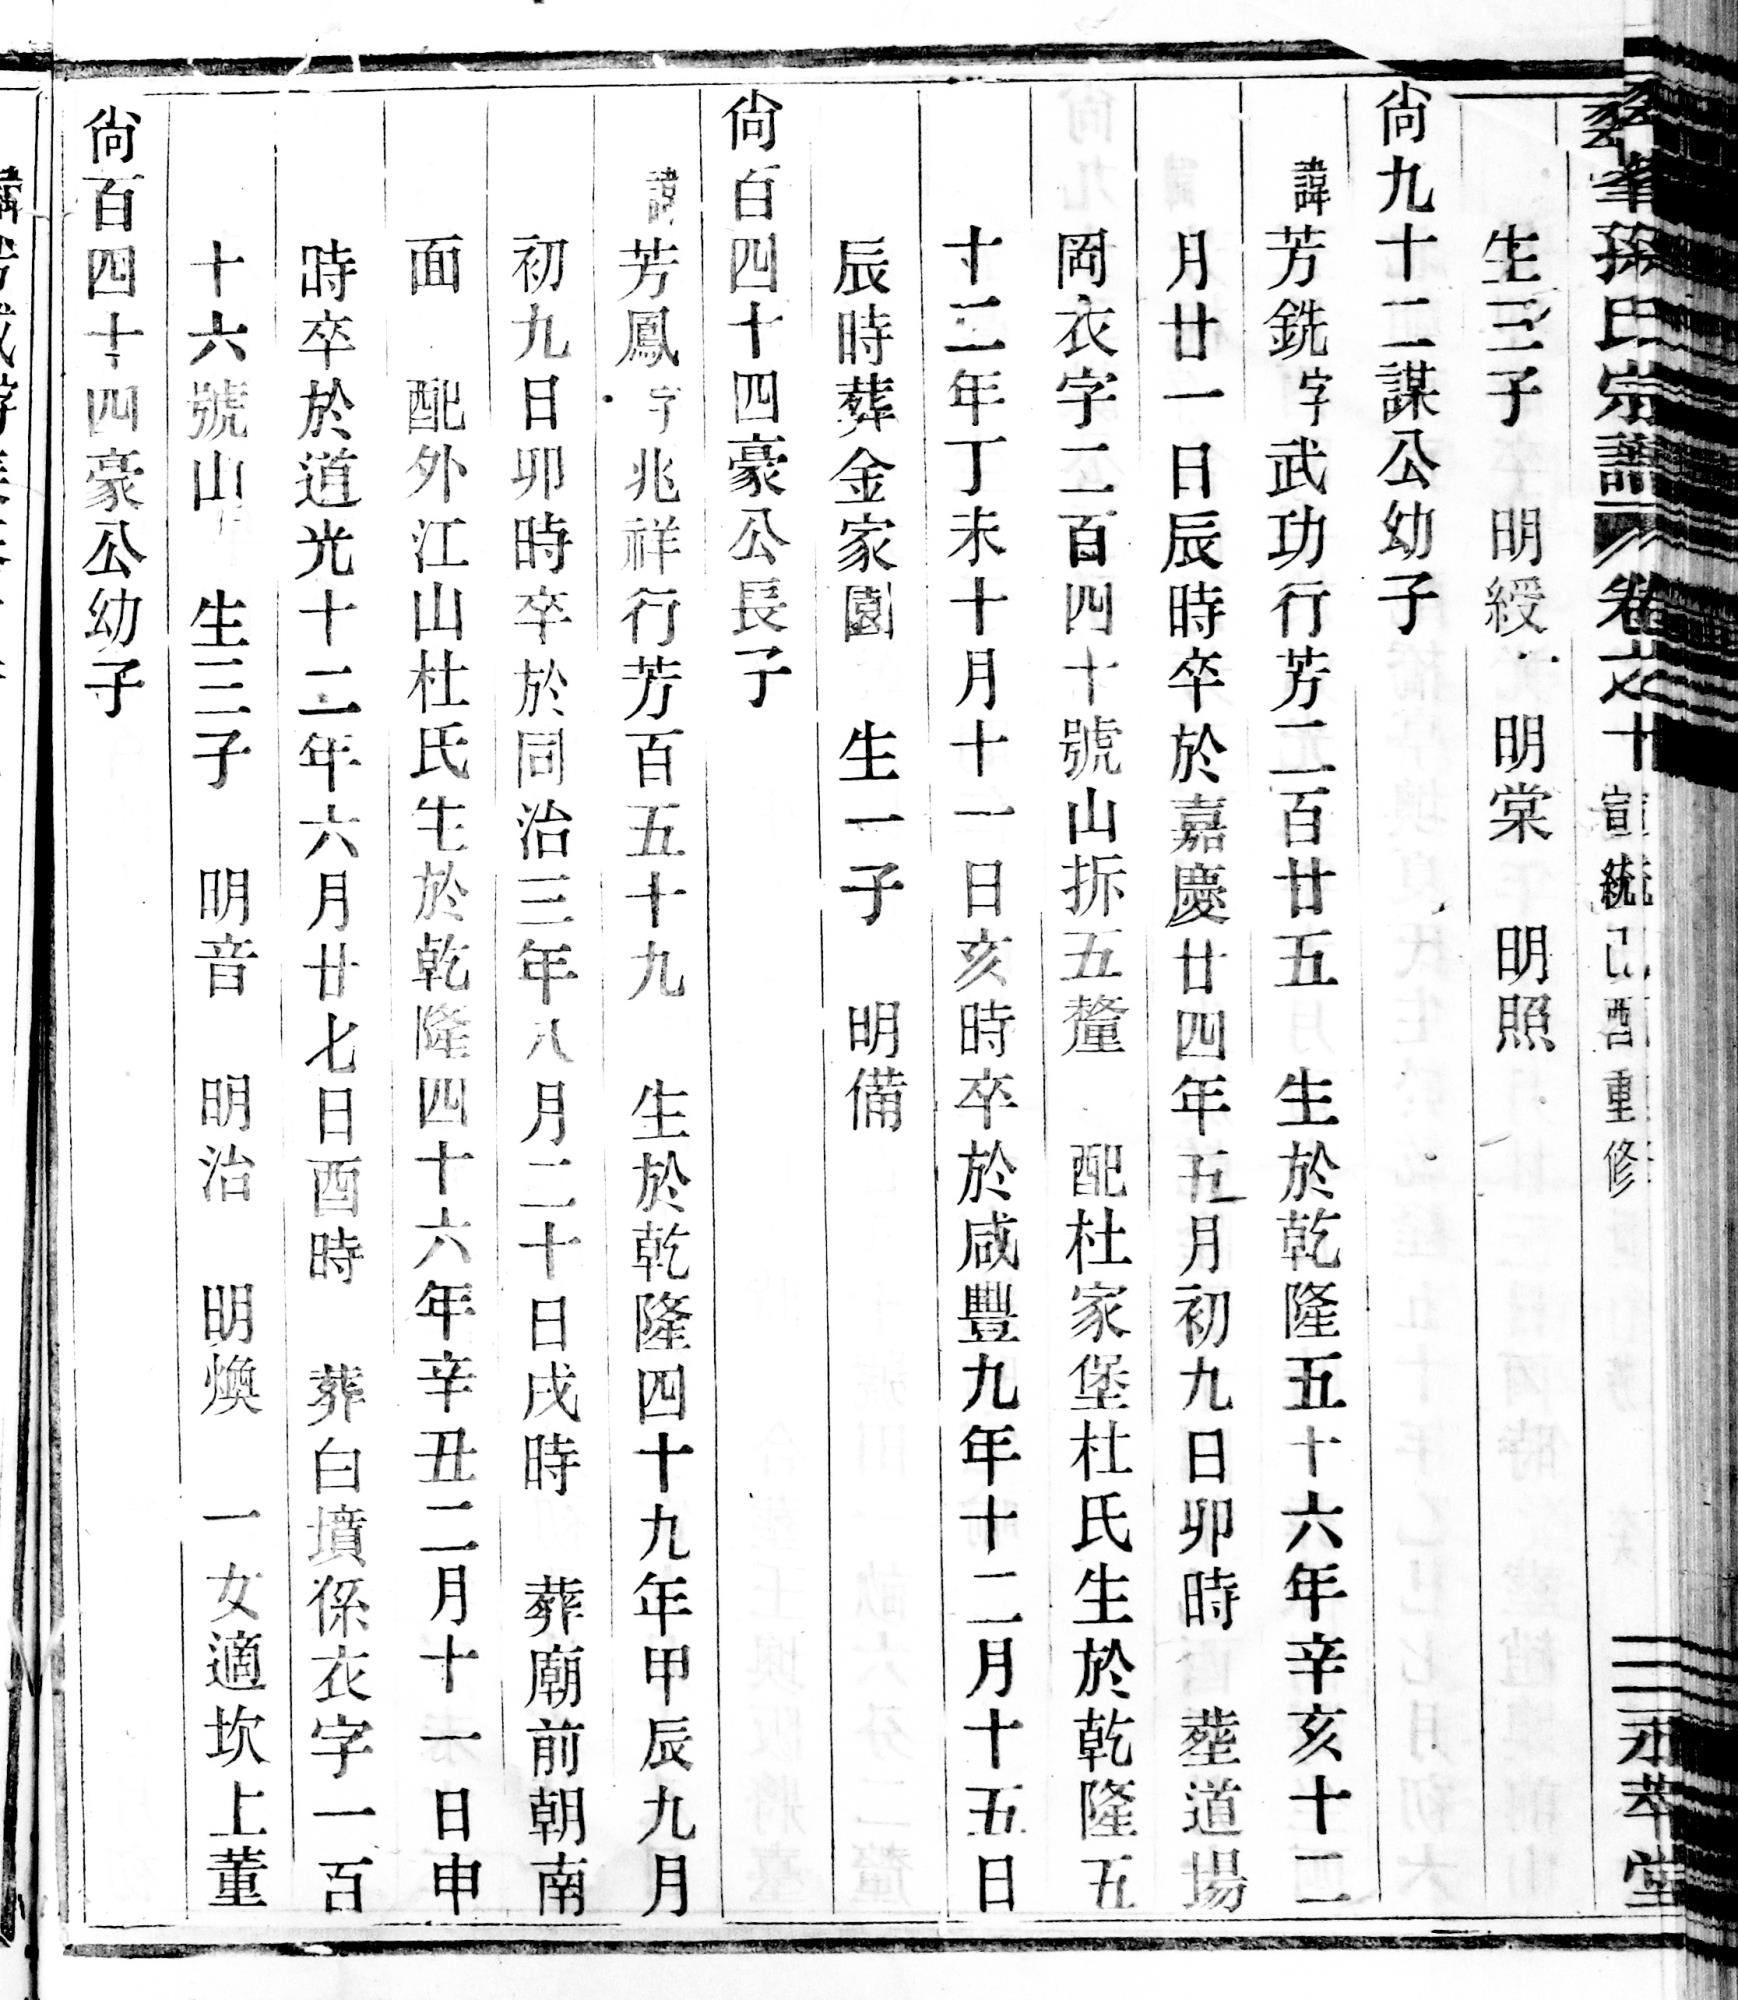 翠峯孫氏宗譜 卷之十 宣統己酉重修 永萃堂
生三子 明綬 明棠 明照
尙九十二謀公幼子
諱芳銑字武功行芳二百廿五 生於乾隆五十六年辛亥十二
月廿一日辰時卒於嘉慶廿四年五月初九日卯時 塟道場
岡衣字二百四十號山拆五釐 配杜家堡杜氏生於乾隆五
十二年丁未十月十一日亥時卒於咸豐九年十二月十五日
辰時葬金家園 生一子 明備
尙百四十四豪公長子
諱芳鳳字兆祥行芳百五十九 生於乾隆四十九年甲辰九月
初九日卯時卒於同治三年八月二十日戌時 葬廟前朝南
面 配外江山杜氏生於乾隆四十六年辛丑二月十一日申
時卒於道光十二年六月廿七日酉時 葬白墳係衣字一百
十六號山 生三子 明音 明治 明煥 一女適坎上董
尙百四十四豪公幼子